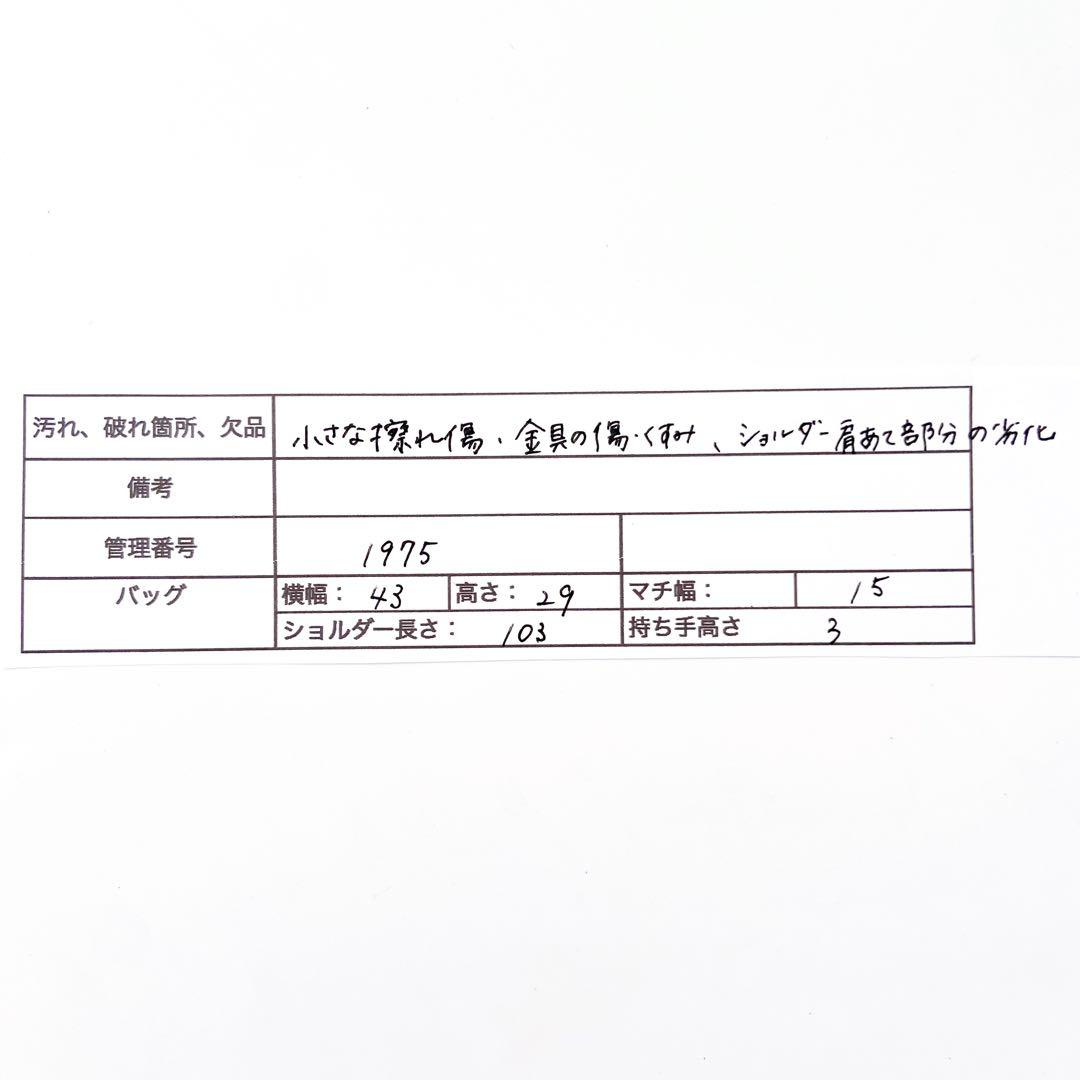 汚れ、破れ箇所、欠品 小さな擦れ傷、金具の傷・くすみ、ショルダー肩あて部分の劣化
備考
管理番号 1975
バッグ 横幅： 43 高さ： 29 マチ幅： 15
ショルダー長さ： 103 持ち手高さ 3